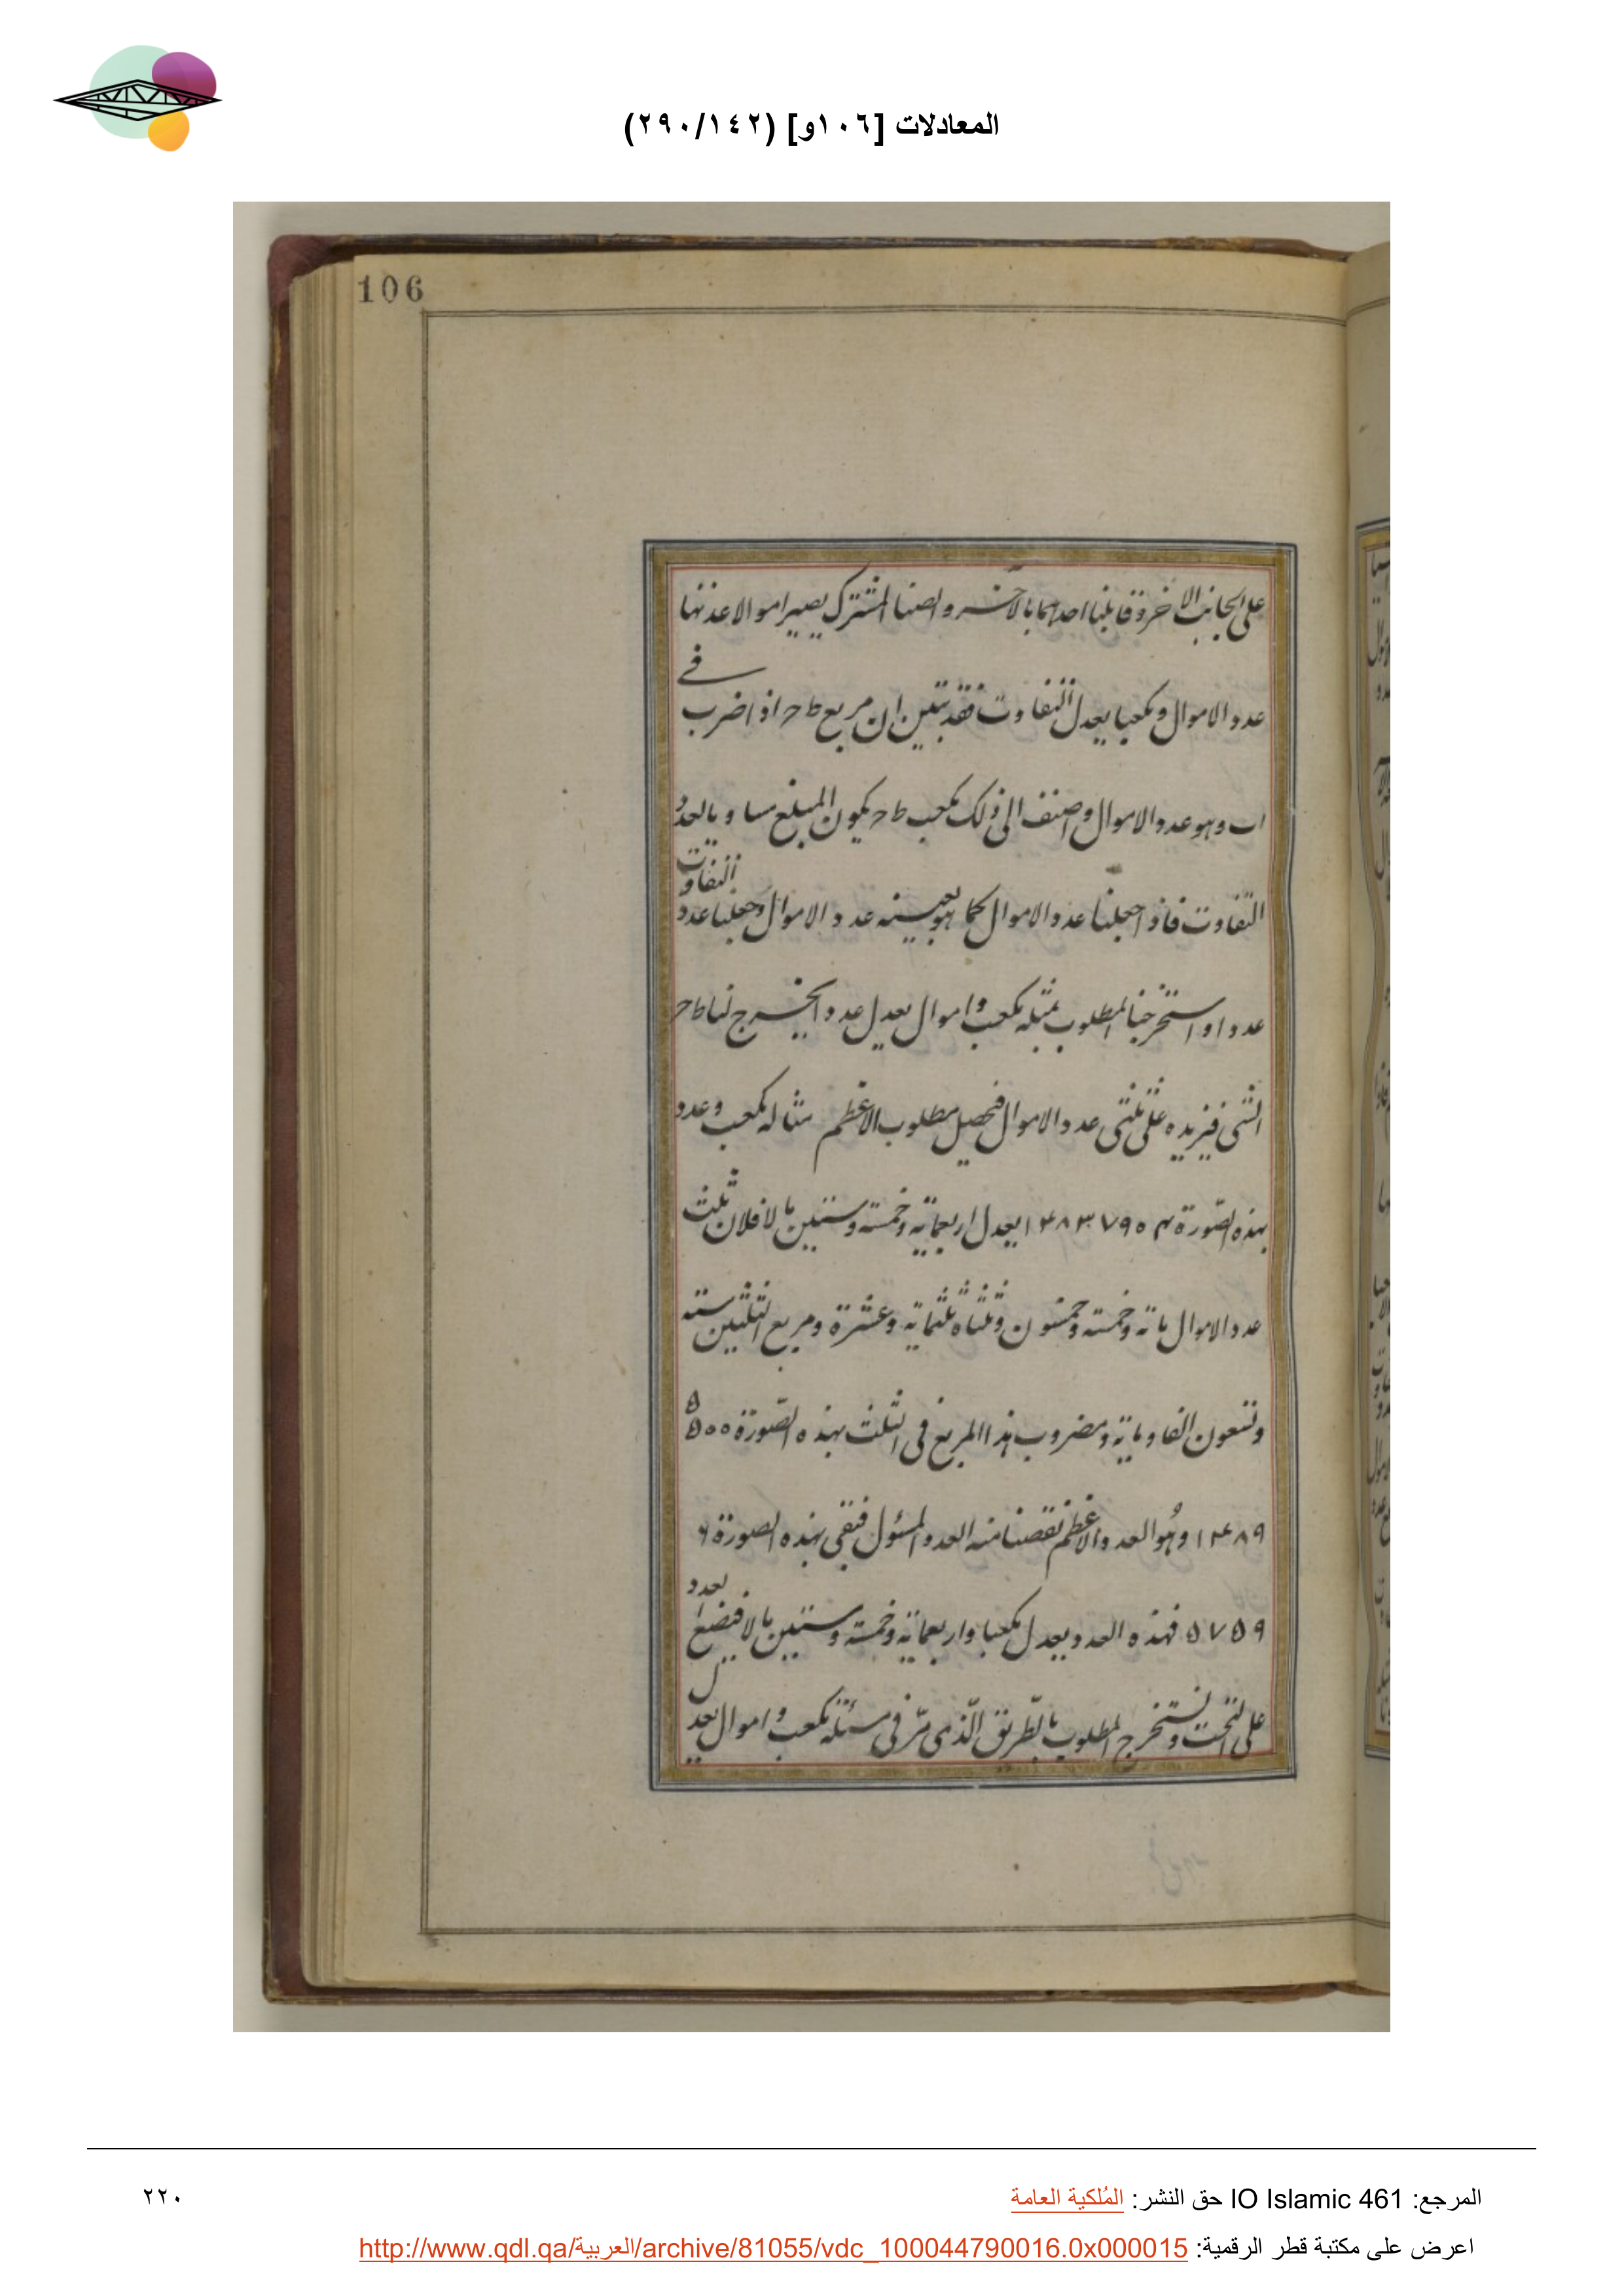 المعادلات [١٠٦و] (٢٩٠/١٤٢)
106
على الجانب الاخر وقابلنا احدهما بالاخر والصنا المشترك يصير اموالا عدتها
عدد الاموال ومكعبا يعدل التفاوت فقد تبين ان مربع ط ح اذا ضرب في
اب وهو عدد الاموال واضف الى ذلك مكعب ط ح يكون المبلغ مساويا لعدد
التفاوت فاذا جعلنا عدد الاموال كما هو بعينه عدد الاموال وجعلنا عدد التفاوت
عددا واستخرجنا المطلوب بمثله مكعب واموال يعدل عددا يخرج لنا ط ح
الشى فنزيده على ثلثى عدد الاموال فيحصل مطلوب الاعظم مثاله مكعب وعدد
بهذه الصورة ١٤٨٣٧٩٥٤ يعدل اربعمائة وخمسة وستين مالا فلان ثلث
عدد الاموال مائة وخمسة وخمسون وثلثاه ثلثمائة وعشرة ومربع الثلثين ستة
وتسعون الفا ومائة ومضروب هذا المربع فى الثلث بهذه الصورة ٥٥٠٠
١٤٨٩ وهو العدد الاعظم نقصنا منه العدد المسئول فبقى بهذه الصورة ٦
٥٧٥٩ فهذه العدد يعدل مكعبا واربعمائة وخمسة وستين مالا فيضع العدد
على التخت ونستخرج المطلوب بالطريق الذى مر فى مسئلة مكعب واموال يعدل
المرجع: IO Islamic 461 حق النشر: المُلكية العامة
٢٢٠
اعرض على مكتبة قطر الرقمية: http://www.qdl.qa/العربية/archive/81055/vdc_100044790016.0x000015